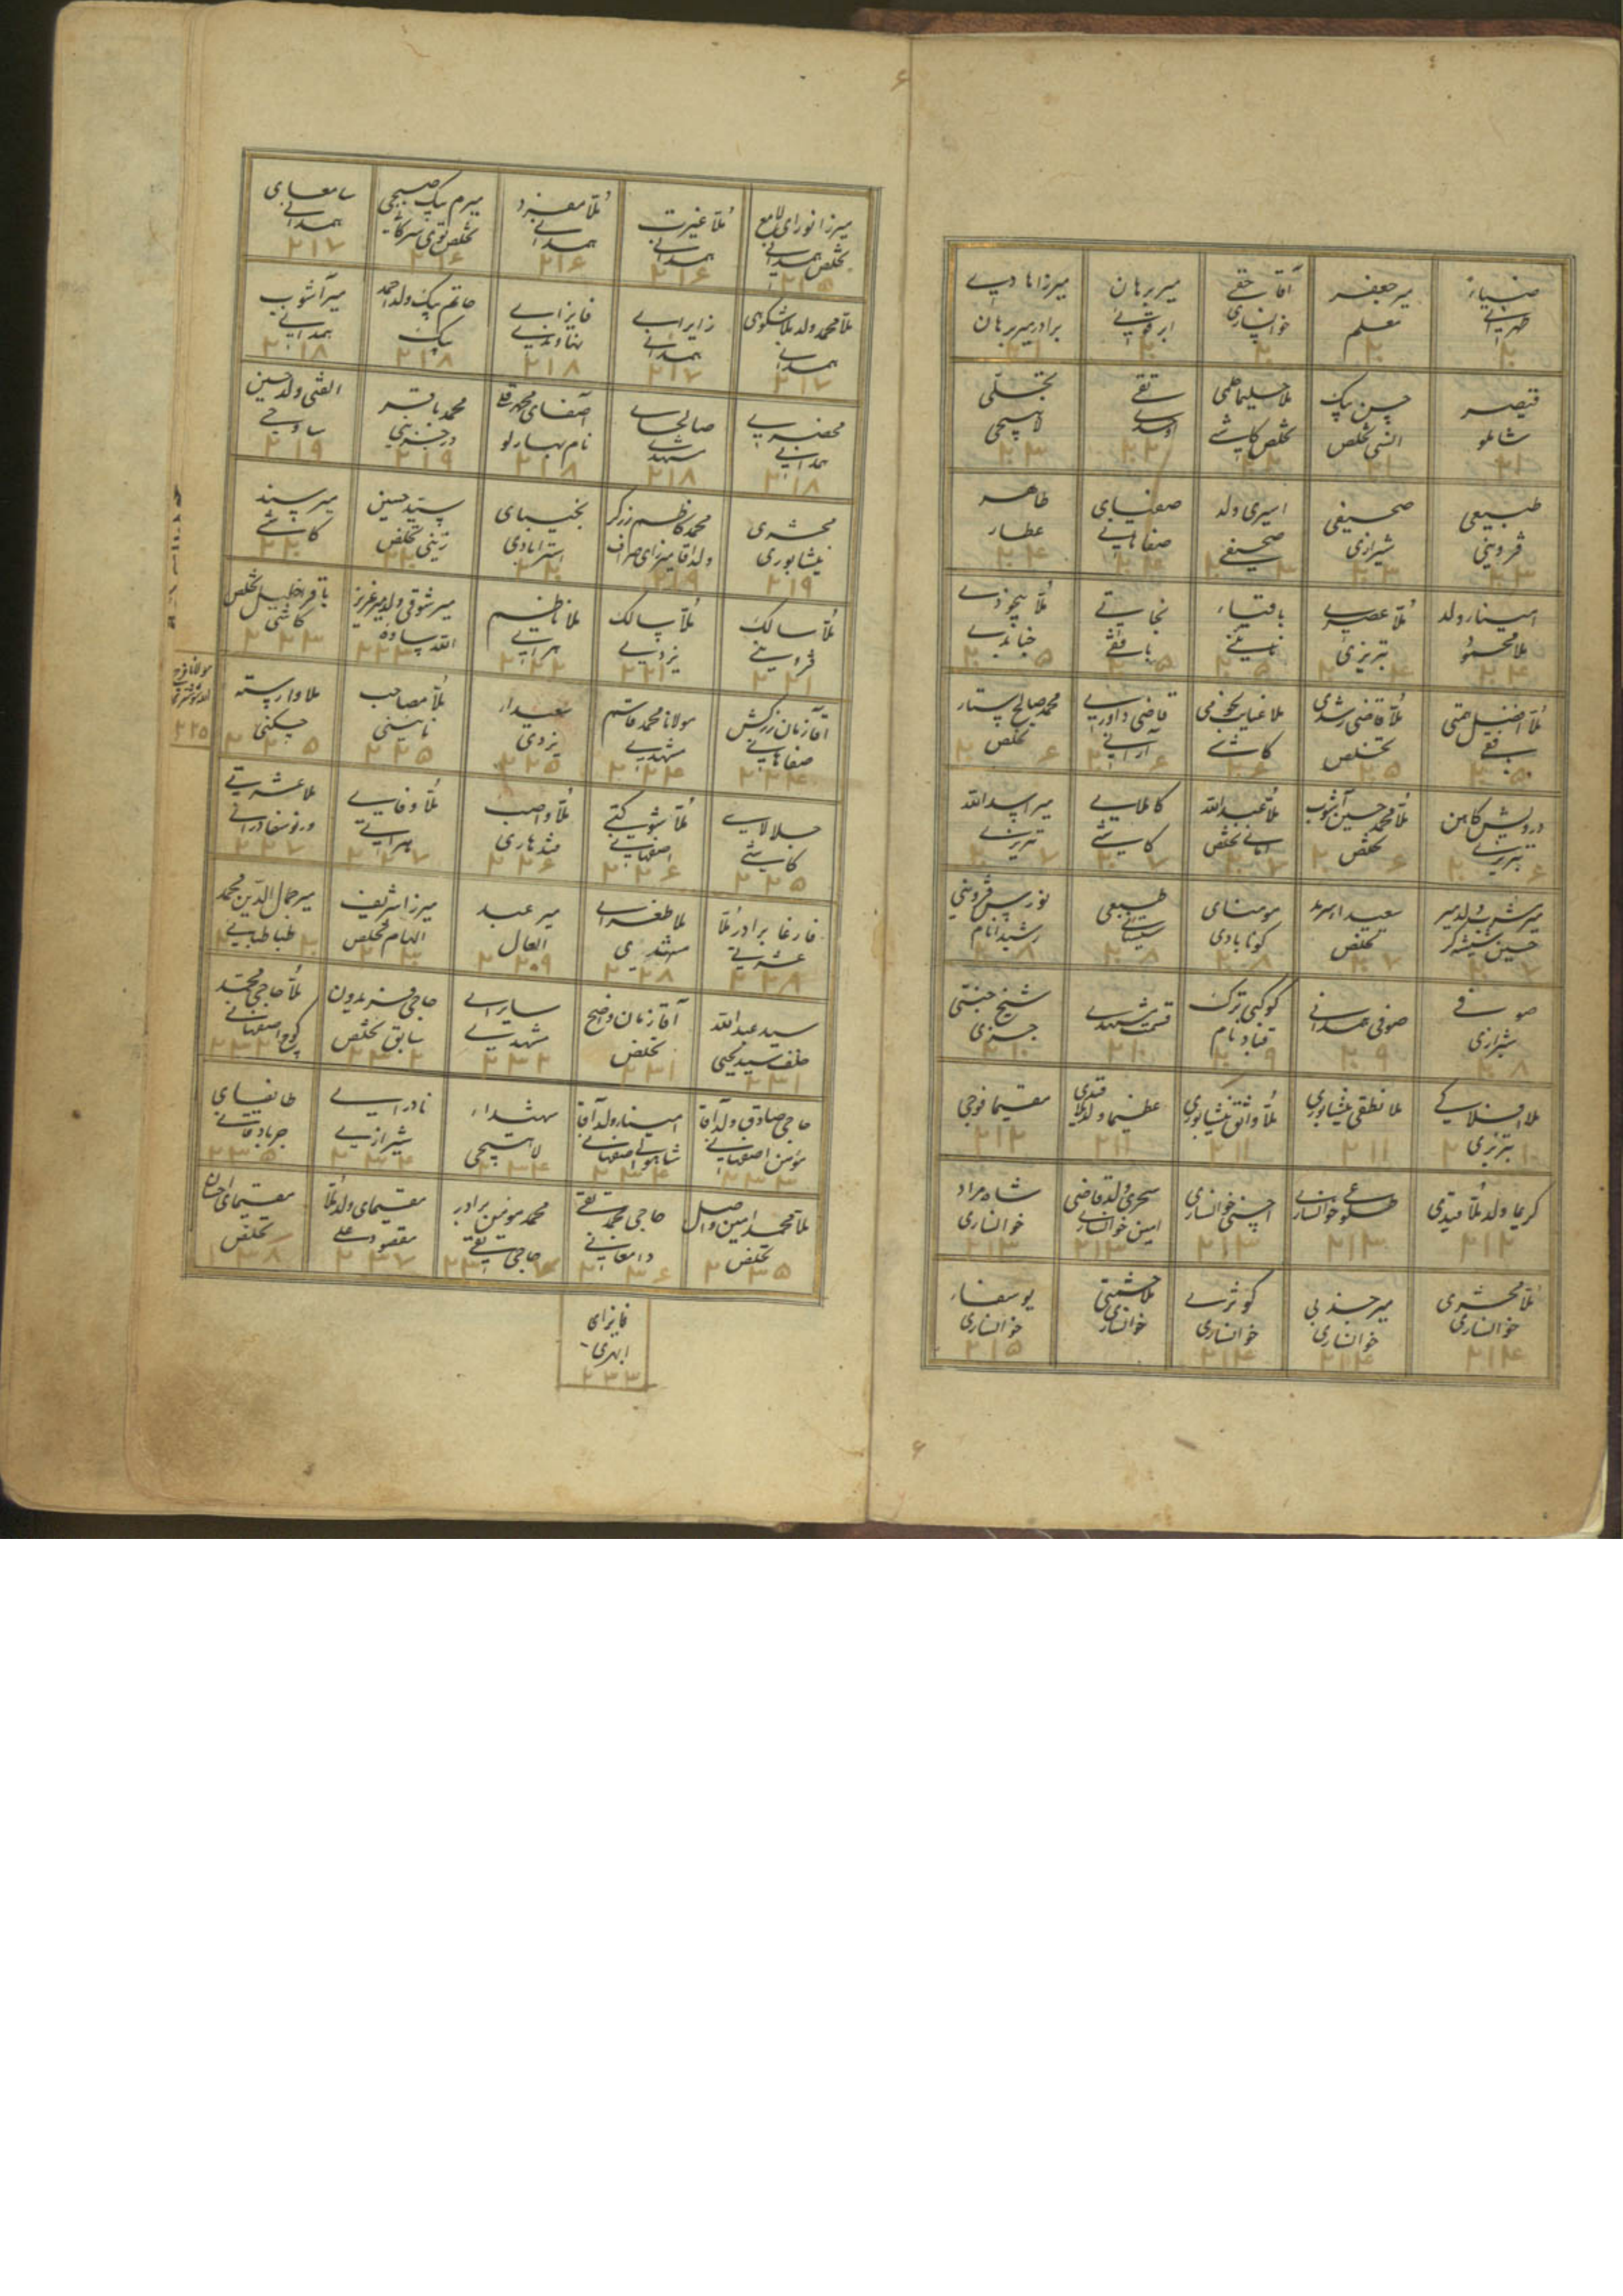 ضیاء
طهرانی
میر جعفر
معلم
آقا تقی
خوانساری
میر برهان
ابرقوئی
میرزا هادی
برادر میر برهان
قیصر
شاملو
حسن بیک
انسی تخلص
تقی
اوحدی
تجلی
لاهیجی
طبیعی
قزوینی
صحیفی
شیرازی
اسیری ولد
صحیفی
صفیای
صفاهانی
طاهر
عطار
امینا ولد
ملا محمود
ملا عصری
تبریزی
باقیاء
نائینی
نجاتی
بافقی
ملا بیخودی
جنابدی
ملا افضل همتی
بافقی
ملا قاضی رشدی
تخلص
ملا غیاث نجومی
کاشی
قاضی داوری
آرانی
محمد صالح ستار
تخلص
درویش کاهن
تبریزی
ملا محمد حسین آشوب
تخلص
ملا عبد الله
امانی تخلص
کاملای
کاشی
میر اسد الله
تبریزی
میر مشرب ولد میر
حسین شیشه گر
سعیدا سرمد
تخلص
مومنای
کونابادی
طبیعی
سیستانی
نورس قزوینی
رشیدا نام
صوفی
شیرازی
صوفی همدانی
کوکبی ترک
قباد نام
قسمت مشهدی
شیخ جنتی
جزی
تبریزی
ملا نطقی نیشابوری
ملا واثق نیشابوری
عظیما ولد ملا
قیدی
مقیما فوجی
کریما ولد ملا قیدی
خوانساری
خوانساری
سحری ولد قاضی
امین خوانساری
شاه مراد
خوانساری
ملا محشری
خوانساری
۲۱۴
میر جذبی
خوانساری
۲۱۴
کوثری
خوانساری
۲۱۴
ملا حشمتی
خوانساری
یوسفاء
خوانساری
۲۱۵
میرزا نورای لامع
تخلص همدانی
۲۱۵
ملا غیرت
همدانی
۲۱۶
ملا مفرد
همدانی
۲۱۶
سامعای
همدانی
۲۱۷
ملا محمد ولد ملا شکوهی
همدانی
۲۱۷
زایرای
همدانی
۲۱۷
فایزای
نهاوندی
۲۱۸
حاتم بیک ولد احمد
بیک
۲۱۸
میر آشوب
همدانی
۲۱۸
محضری
همدانی
۲۱۸
صالحای
مشهدی
۲۱۸
آصفای محمد قلی
نام بهارلو
۲۱۸
محمد باقر
درجزینی
۲۱۹
الفتی ولد حسین
ساوجی
۲۱۹
محشری
نیشابوری
۲۱۹
محمد کاظم زرگر
ولد آقا میرزای صراف
۲۱۹
نجیبای
استرابادی
سید حسین
زینی تخلص
میر سند
کاشی
ملا سالک
قزوینی
۲۲۱
ملا سالک
یزدی
۲۲۱
ملا ناظم
هراتی
۲۲۲
میر شوقی ولد میر عزیز
الله ساوه
۲۲۳
باقرا خلیل تخلص
کاشی
۲۲۳
آقا زمان زرکش
صفاهانی
۲۲۴
مولانا محمد قاسم
مشهدی
۲۲۴
سعیدا
یزدی
۲۲۵
ملا مصاحب
نائینی
۲۲۵
ملا وارسته
چگنی
۲۲۵
۲۲۵
جلالای
کاشی
۲۲۵
اصفهانی
۲۲۶
ملا واصب
قندهاری
۲۲۶
ملا وفای
هراتی
۲۲۷
ملا عشرتی
۲۲۷
فارغا برادر ملا
عشرتی
۲۲۸
ملا طغرای
مشهدی
۲۲۸
میر عبد
العال
۲۲۰۹
میرزا شریف
الهام تخلص
میر جمال الدین محمد
طباطبائی
سید عبد الله
خلف سید یحیی
۲۳۱
آقا زمان واضح
تخلص
۲۳۱
سایرای
مشهدی
۲۳۲
حاجی فریدون
سابق تخلص
۲۳۲
ملا حاجی محمد
اصفهانی
۲۳۳
حاجی صادق ولد آقا
مؤمن اصفهانی
۲۳۳
امینا ولد آقا
شاپور اصفهانی
۲۳۴
شیدا
لاهیجی
۲۳۴
نادرای
شیرازی
۲۳۴
طایفای
جربادقانی
۲۳۵
ملا محمد امین واصل
تخلص
۲۳۵
حاجی محمد تقی
دامغانی
۲۳۶
محمد مومن برادر
حاجی تقی
مقیمای ولد ملا
مقصود علی
۲۳۷
مقیمای احسان
تخلص
۲۳۸
فایزای
ابهری
۲۳۳